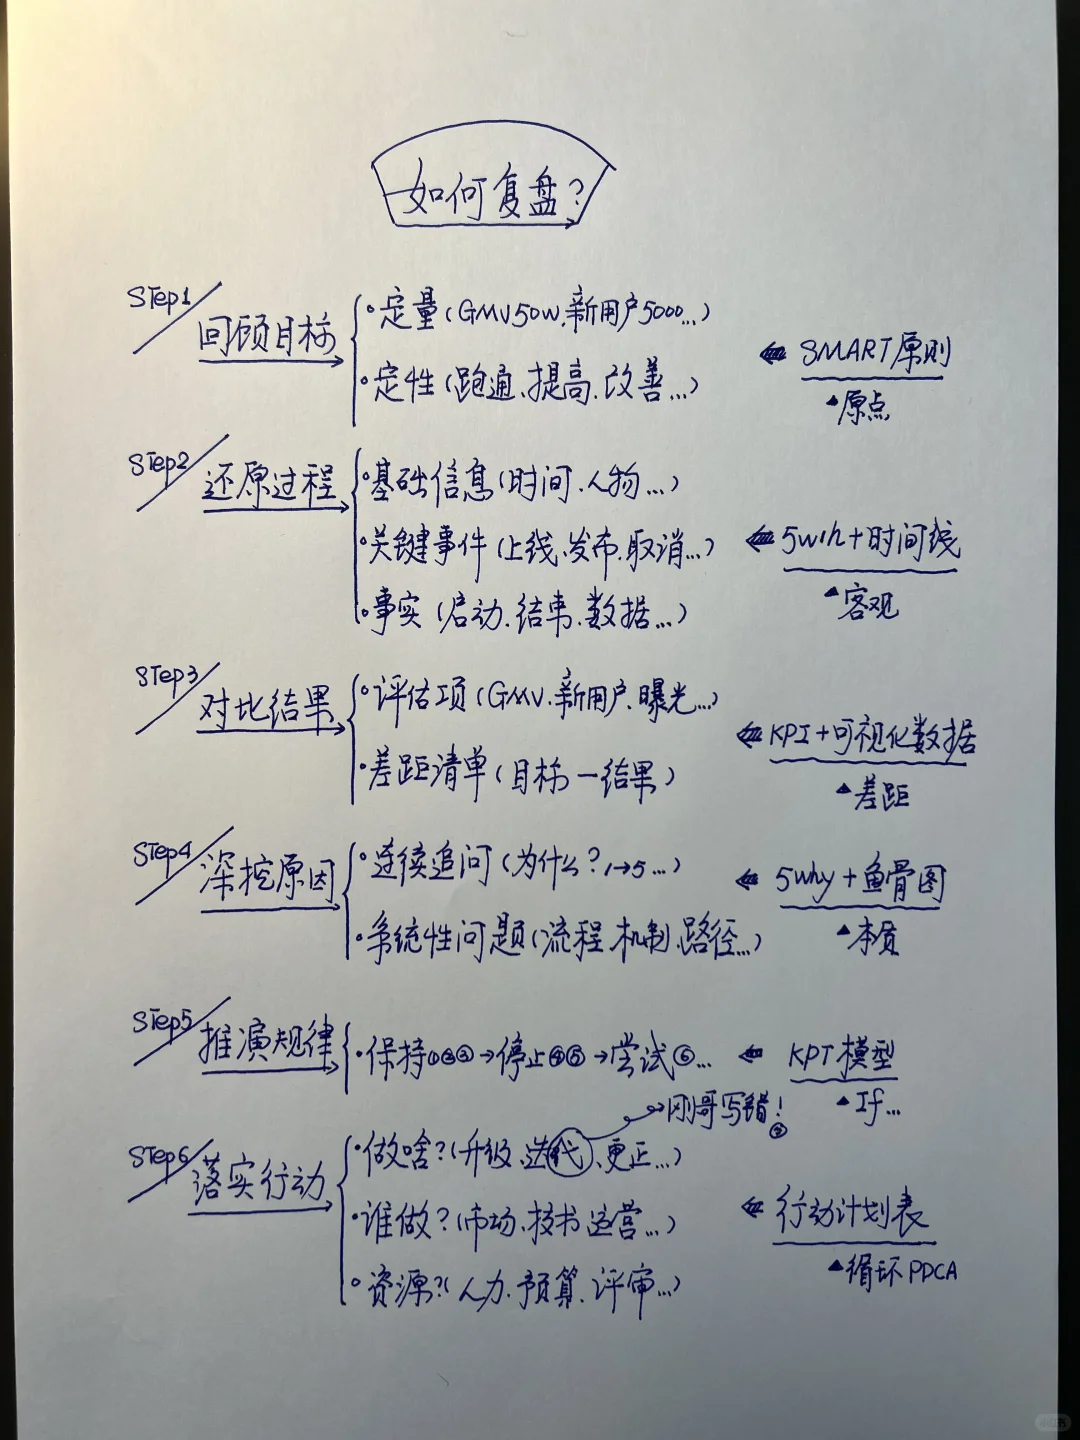 如何复盘?
STep1 回顾目标
·定量(GMV50W.新用户5000...)
·定性(跑通、提高、改善...)
SMART原则
▲原点
STep2 还原过程
·基础信息(时间、人物...)
·关键事件(上线、发布、取消...)
·事实(启动、结束、数据...)
5w1h+时间线
▲客观
STep3 对比结果
·评估项(GMV、新用户、曝光...)
·差距清单(目标—结果)
KPI+可视化数据
▲差距
STep4 深挖原因
·连续追问(为什么?1→5...)
·系统性问题(流程、机制、路径...)
5why+鱼骨图
▲本质
STep5 推演规律
·保持①②③→停止④⑤→尝试⑥...
KPT模型
▲If...
刚哥写错!
STep6 落实行动
·做啥?(升级、迭代、更正...)
·谁做?(市场、技术、运营...)
·资源?(人力、预算、评审...)
行动计划表
▲循环PDCA